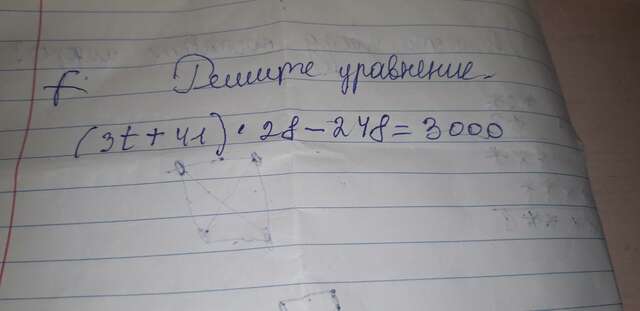 Решите уравнение.
(3t + 41) · 28 - 248 = 3000